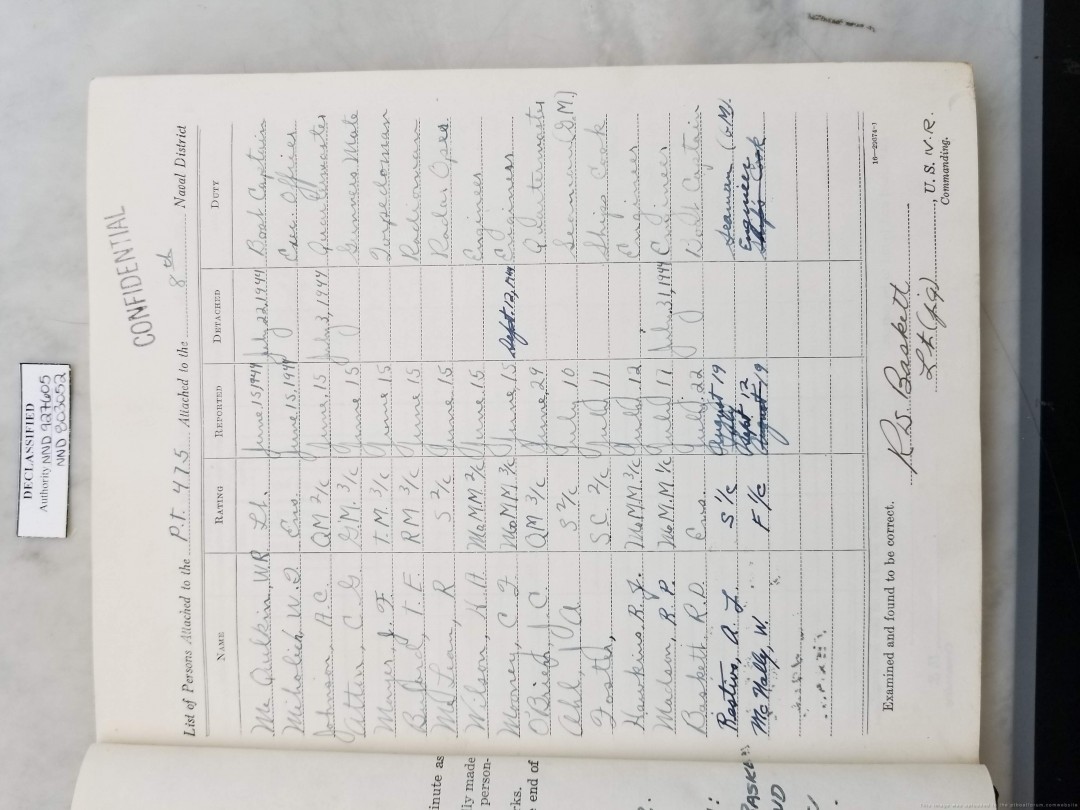 DECLASSIFIED
Authority NND 927605
NND 803052
CONFIDENTIAL
List of Persons Attached to the P.T. 475 Attached to the 8th Naval District
NAME RATING REPORTED DETACHED DUTY
Mc Caulkin, WR Lt. June 15, 1944 July 22, 1944 Boat Captain
W. I. Ens June 15, 1944 Exec. Officer
Johnson, A.C. QM 2/c June 15 July 3, 1944 Quartermaster
C G G.M. 3/c June 15 Gunners Mate
J. F. T.M. 3/c June 15 Torpedoman
T. E. RM 3/c June 15 Radioman
McLean, R S 2/c June 15 Radar Oper.
Wilson, H. A. MoMM 2/c June 15 Engineer
Mooney, C F MoMM 3/c June 15 Sept. 12, 1944 Engineer
O'Brien, J C. QM 3/c June 29 Quartermaster
Ahl, J A S 2/c July 10 Seaman (G.M.)
Foster, S C 2/c July 11 Ships Cook
Hawkins, R. J. MoMM 3/c July 12 Engineer
Madson, R. P. MoM.M 1/c July 17 July 31, 1944 Engineer
Baskett R.D. Ens July 22 Boat Captain
Restivo, A. L. S 1/c August 19 Seaman (G.M.)
Mc Nally, W. F 1/c Sept. 12 Engineer
Examined and found to be correct.
R D Baskett
Lt (jg), U. S. N. R.
Commanding.
16—22074-1
inute as
lly made
person-
ks.
end of